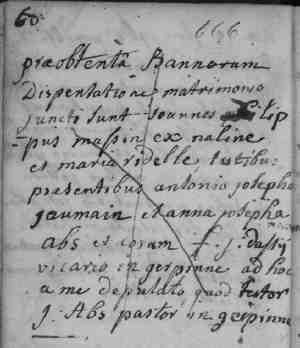 60.
666
præobtentâ Bannorum
Dispentatione matrimonio
juncti sunt joannes philip
pus massin ex naline
et maria ridelle, testibus
presentibus antonio josepho
jaumain et anna josepha
abs et coram f. j. dassÿ
vicario in gerpinne ad hoc
a me deputato quod testor
J: Abs pastor in gerpinne